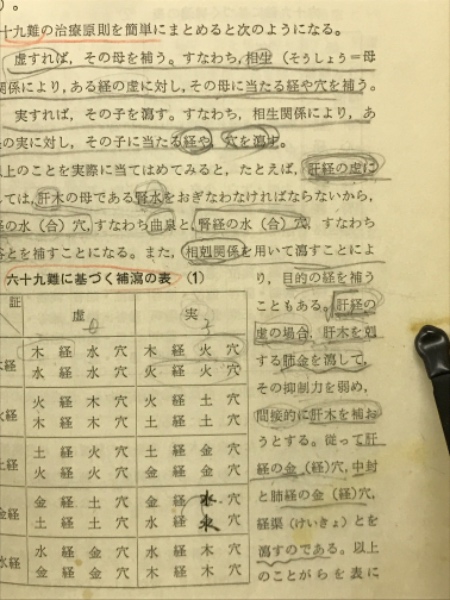 。
十九難の治療原則を簡単にまとめると次のようになる。
虚すれば，その母を補う。すなわち，相生（そうしょう＝母
関係により，ある経の虚に対し，その母に当たる経や穴を補う。
実すれば，その子を瀉す。すなわち，相生関係により，あ
の実に対し，その子に当たる経や，穴を瀉す。
上のことを実際に当てはめてみると，たとえば，肝経の虚に
ては，肝木の母である腎水をおぎなわなければならないから，
の水（合）穴，すなわち曲泉と，腎経の水（合）穴，すなわち
谷とを補すことになる。また，相剋関係を用いて瀉すことによ
六十九難に基づく補瀉の表（1）
証 虚 実
経 木経水穴 木経火穴
水経水穴 火経火穴
火経 火経木穴 火経土穴
木経木穴 土経土穴
土経 土経火穴 土経金穴
火経火穴 金経金穴
金経 金経土穴 金経水穴
土経土穴 水経水穴
水経 水経金穴 水経木穴
金経金穴 木経木穴
り，目的の経を補う
こともある。肝経の
虚の場合，肝木を剋
する肺金を瀉して，
その抑制力を弱め，
間接的に肝木を補お
うとする。従って肝
経の金（経）穴，中封
と肺経の金（経）穴，
経渠（けいきょ）とを
瀉すのである。以上
のことがらを表に